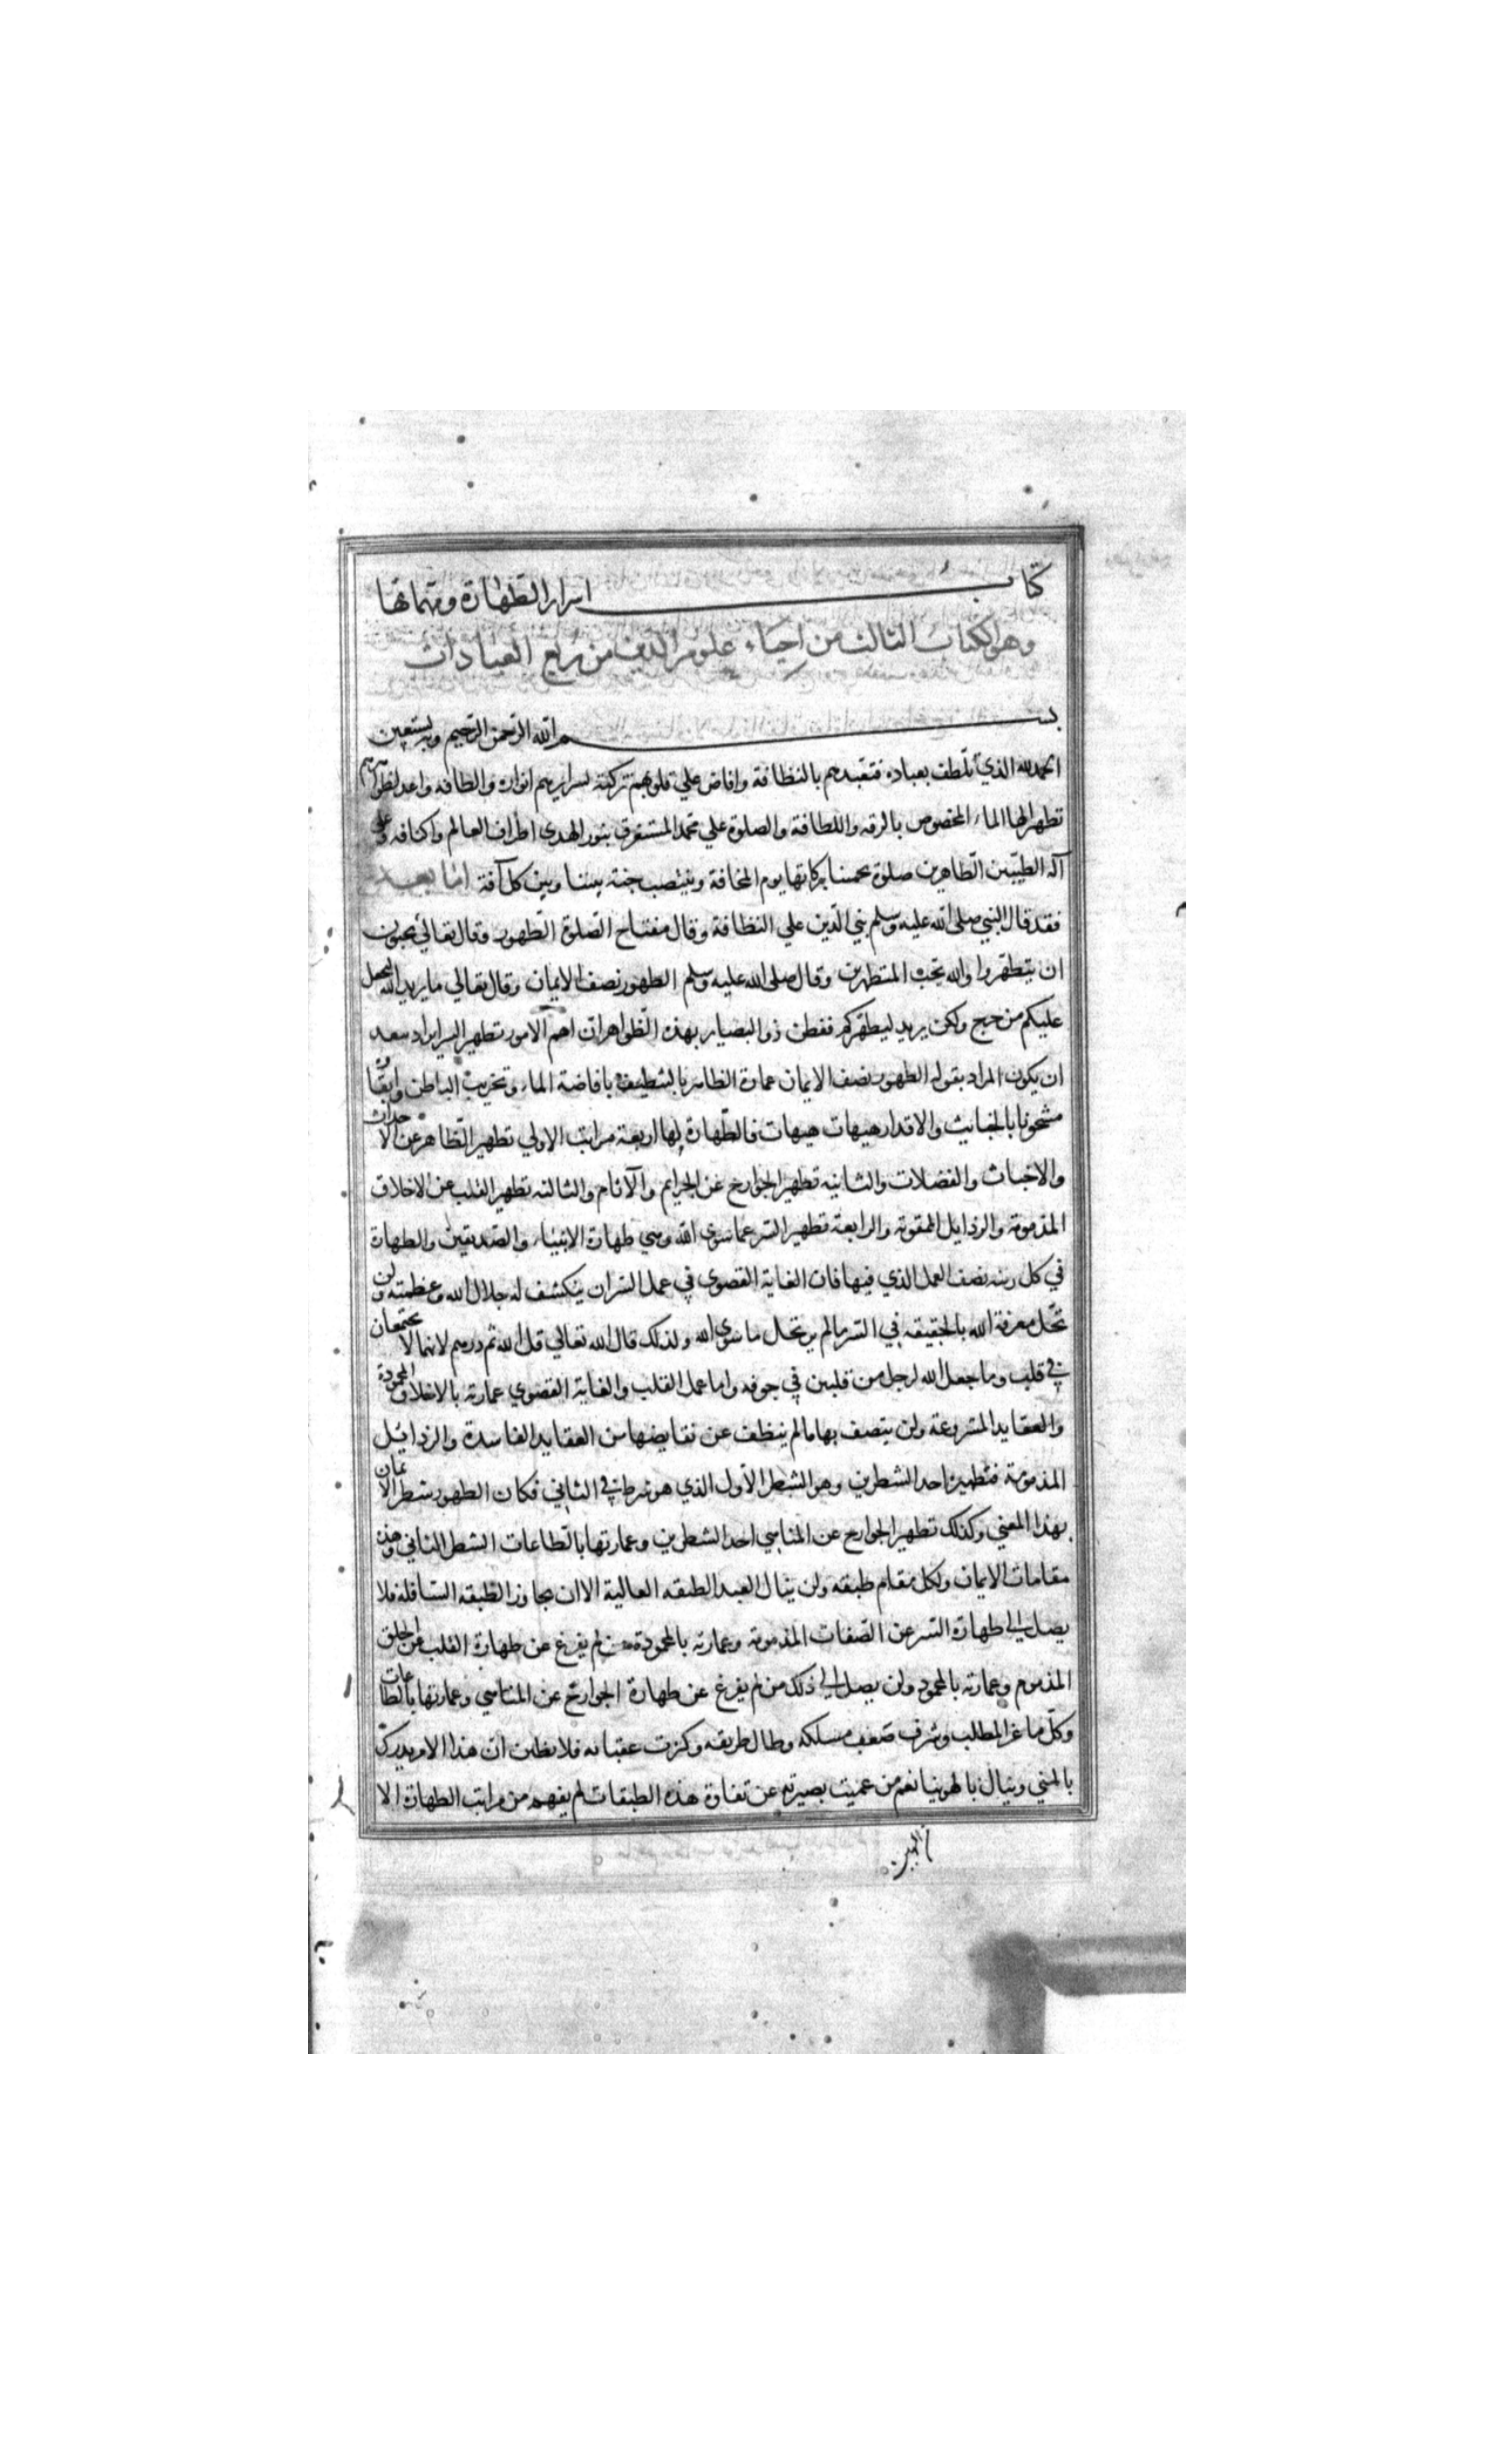 كتاب اسرار الطهارة ومهماتها
وهو الكتاب الثالث من احياء علوم الدين من ربع العبادات
بسم الله الرحمن الرحيم وبه نستعين
الحمد لله الذي تلطف بعباده فتعبدهم بالنظافة وافاض علي قلوبهم تزكية لسرايرهم انواره والطافه واعد لظواهرهم
تطهيرا لها الماء المخصوص بالرقه واللطافة والصلوة علي محمد المستغرق بنور الهدي اطراف العالم واكنافه وعلي
آله الطيبين الطاهرين صلوة تحمينا بركاتها يوم المخافة وتنتصب جنة بيننا وبين كل آفة اما بعد
فقد قال النبي صلى الله عليه وسلم بني الدين علي النظافة وقال مفتاح الصلوة الطهور وقال تعالي يحبون
ان يتطهروا والله يحب المتطهرين وقال صلى الله عليه وسلم الطهور نصف الايمان وقال تعالي ما يريد الله ليجعل
عليكم من حرج ولكن يريد ليطهركم ففطن ذو البصاير بهذه الظواهر ان اهم الامور تطهير السراير اذ يبعد
ان يكون المراد بقوله الطهور نصف الايمان عمارة الظاهر بالتنظيف بافاضة الماء وتخريب الباطن وابقاؤه
مشحونا بالخبايث والاقذار هيهات هيهات فالطهارة لها اربعة مراتب الاولي تطهير الظاهر عن الاحداث
والاخباث والفضلات والثانيه تطهير الجوارح عن الجرايم والآثام والثالثه تطهير القلب عن الاخلاق
المذمومة والرذايل الممقوته والرابعة تطهير السر عما سوي الله وهي طهارة الانبياء والصديقين والطهارة
في كل رتبه نصف العمل الذي فيها فان الغاية القصوي في عمل السر ان ينكشف له جلال الله وعظمته ولن
تحل معرفة الله بالحقيقه في السر ما لم يرتحل ما سوي الله ولذلك قال الله تعالي قل الله ثم ذرهم لانهما لا يجتمعان
في قلب وما جعل الله لرجل من قلبين في جوفه واما عمل القلب والغاية القصوي عمارته بالاخلاق المحمودة
والعقايد المشروعة ولن يتصف بها ما لم ينظف عن نقايضها من العقايد الفاسدة والرذائل
المذمومة فتطهيره احد الشطرين وهو الشطر الأول الذي هو شرط في الثاني فكان الطهور شطر الايمان
بهذا المعني وكذلك تطهير الجوارح عن المناهي احد الشطرين وعمارتها بالطاعات الشطر الثاني وهذه
مقامات الايمان ولكل مقام طبقه ولن ينال العبد الطبقه العالية الا ان يجاوز الطبقه السافله فلا
يصل الي طهارة السر عن الصفات المذمومة وعمارته بالمحمودة من لم يفرغ عن طهارة القلب من الخلق
المذموم وعمارته بالمحمود ولن يصل الي ذلك من لم يفرغ عن طهارة الجوارح عن المناهي وعمارتها بالطاعات
وكل ما عز المطلب وشرف صعب مسلكه وطال طريقه وكثرت عقباته فلا تظنن ان هذا الامر يدرك
بالمني وينال بالهوينا نعم من عميت بصيرته عن تفاوة هذه الطبقات لم يفهم من مراتب الطهارة الا